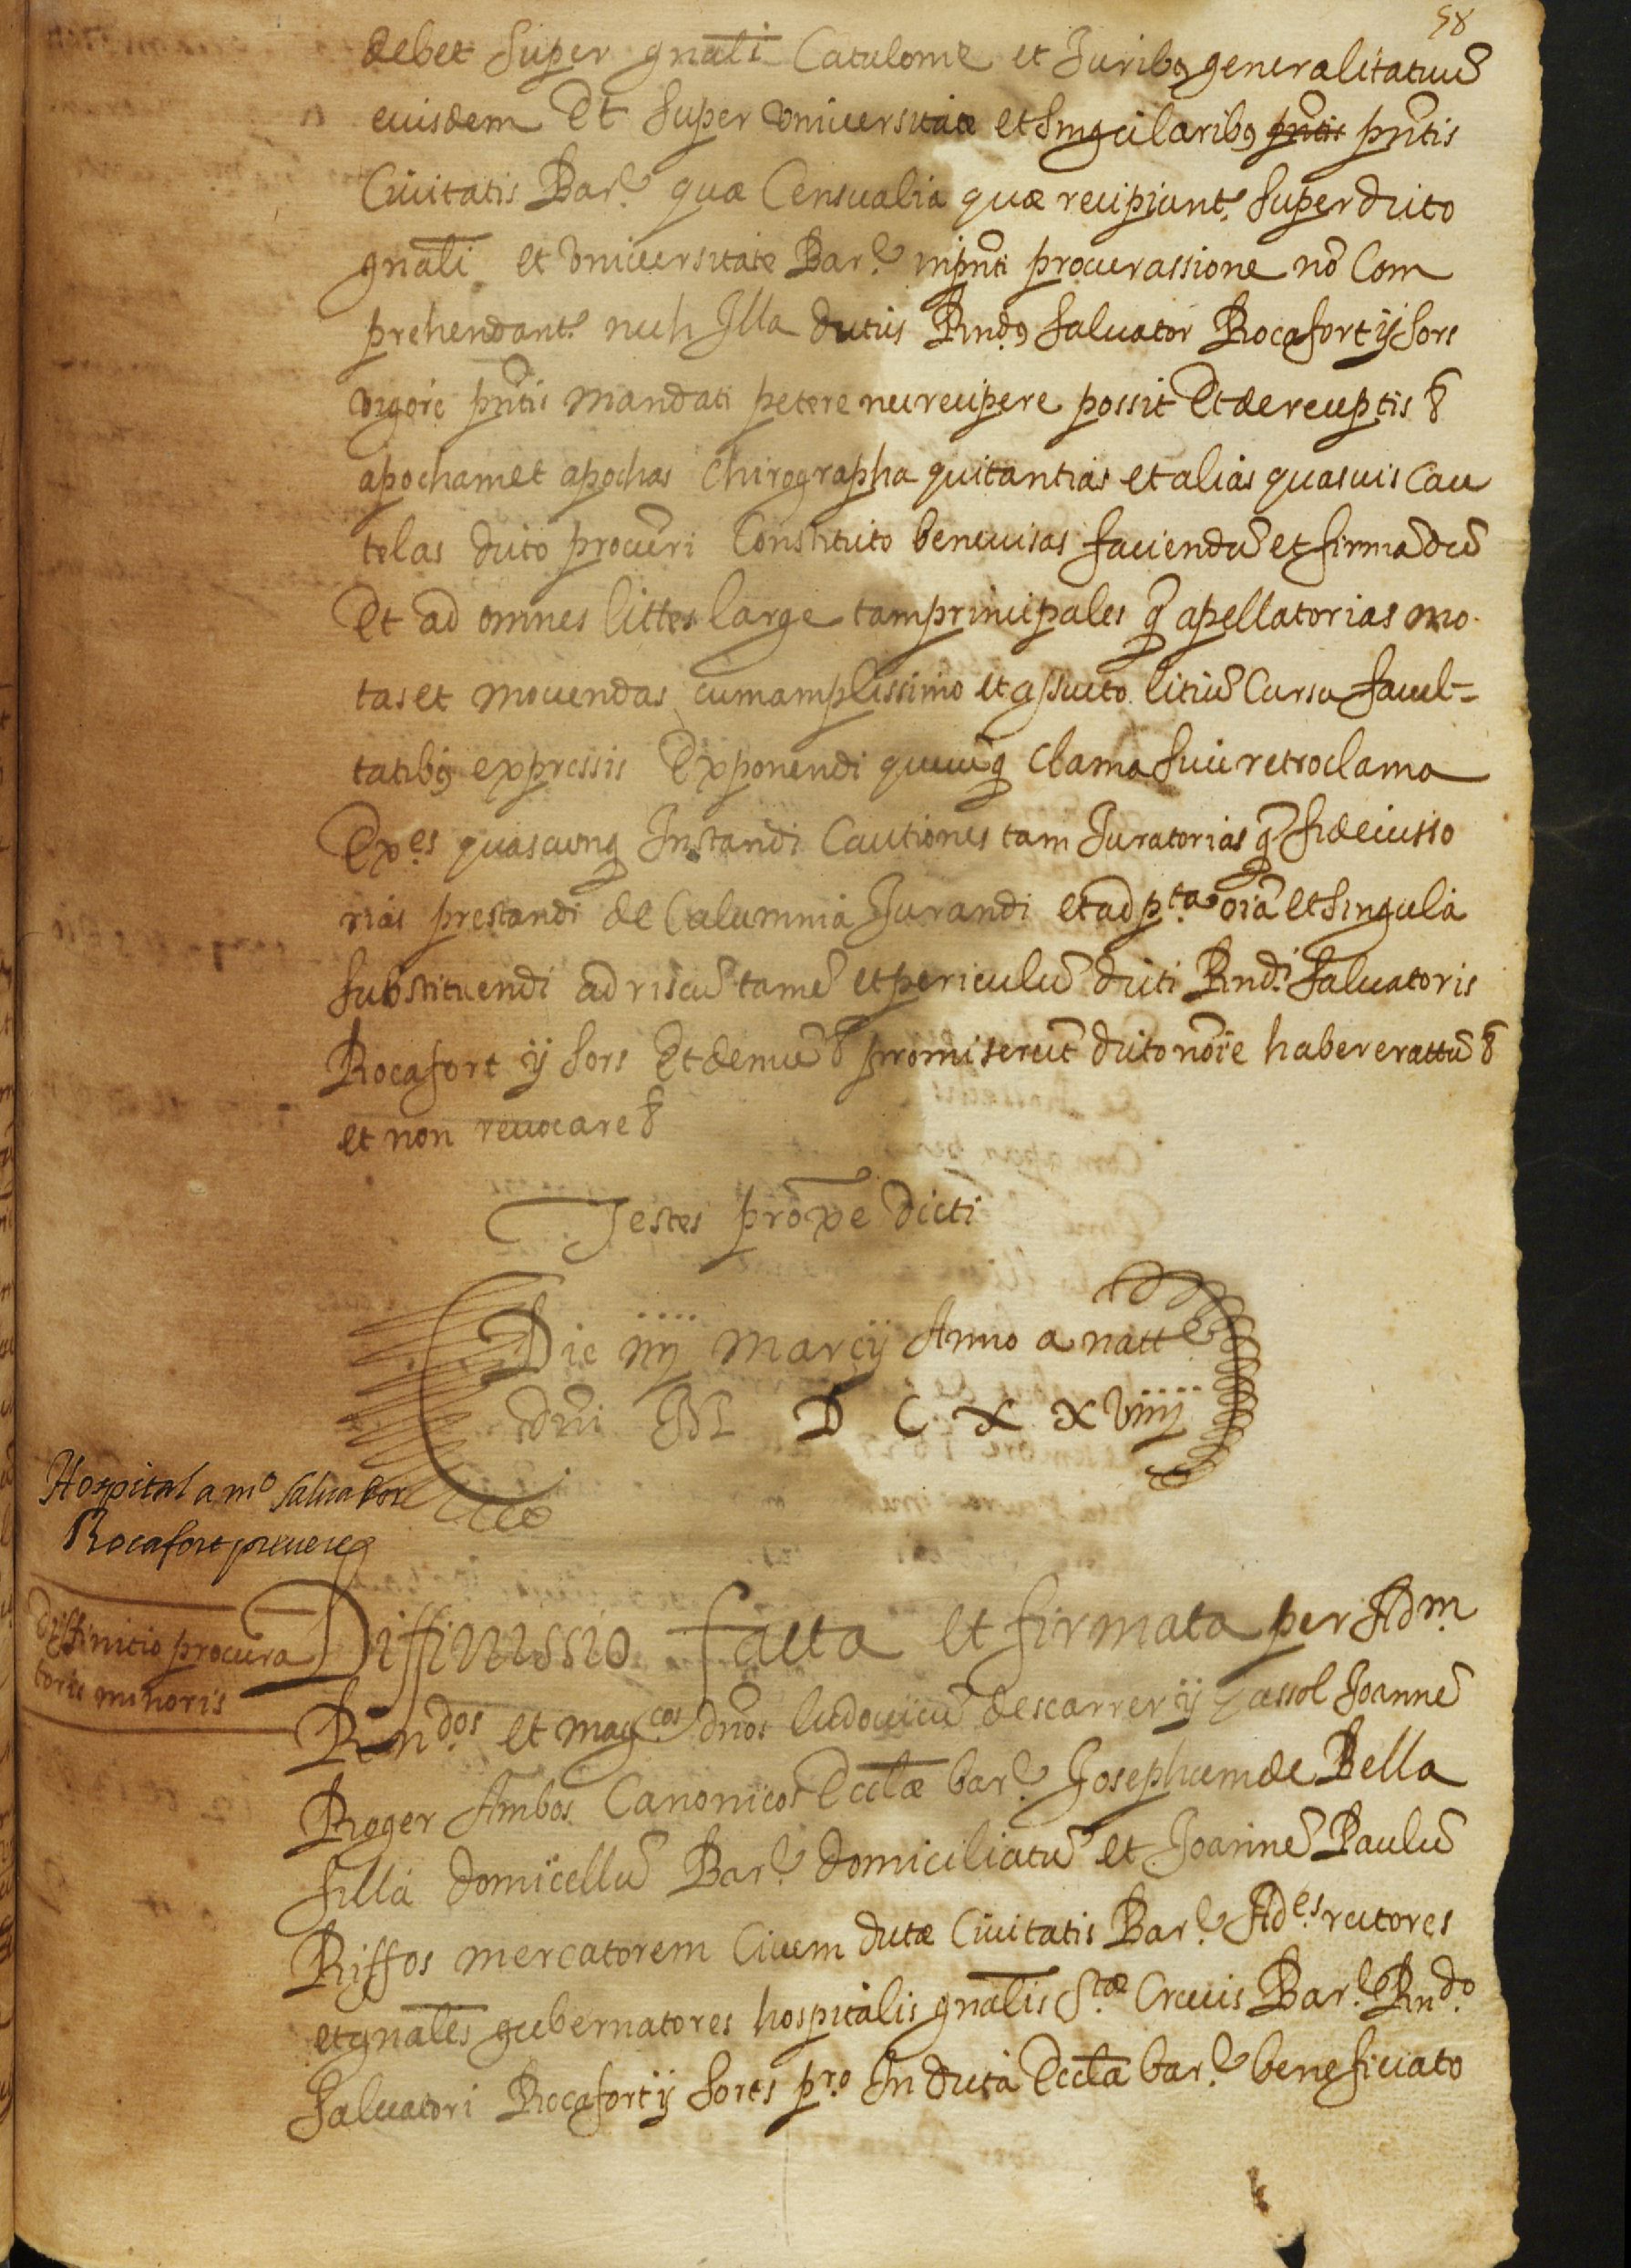 58
debet super gnãli Catalonie et Juribȝ generalitatuũ
euisdem Et super vniuersitate et singularibȝ p̃ntis p̃ntis
Ciuitatis Barᵉ quæ Censualia quæ recipiunt. super dicto
gnãli et vniuersitate Barᵉ in p̃nti procurassione nõ Com
prehendant. nech Illa dictus Rndȝ saluator Rocafort y sors
vigore p̃ntis mandati petere nec recipere possit Et de receptis &
apocham et apochas Chirographa quitantias et alias quasuis Cau
telas dicto procũri Constituto bene uisas faciendũ et firmãdũ
Et ad omnes littes large tam principales q̃ apellatorias mo
tas et mouendas cum amplissimo et assueto litiũ Cursu facul=
tatibȝ expressis Exponendi quecũq clama siue retroclama
Expᵉˢ quascunq Instandi Cautiones tam Juratorias q̃ fideiusso
rias prestandi de Calumnia Jurandi et ad pᵗᵃ oĩa et singula
substituendi ad riscũ tamẽ et periculũ dicti Rndi saluatoris
Rocafort y sors Et demũ & promiserũt dicto nõie habere rattũ &
et non reuocare &
Testes prõxe dicti
Die iiij marcij Anno a natt.
dñi M D C X X viiij
Hospital a mº saluador
Rocafort preuere
Diffinitio procura
toris minoris
Diffinissio facta et firmata per Adm.
Rñdos et magᶜᵒˢ dños ludouicũ descarrer y Jassol Joannẽ
Roger Ambos Canonicos Ecclæ barᵉ Josephum de Bella
filla domicellũ Barᵉ domiciliatũ et Joannẽ Paulũ
Riffos mercatorem Ciuem dictæ Ciuitatis Barᵉ Adᵉˢ rectores
et gnãles gubernatores hospitalis gnãlis Sᵗᵃᵉ Crucis Barᵉ Rndo
Saluatori Rocafort y sors pro In dicta Eccla barᵉ beneficiato